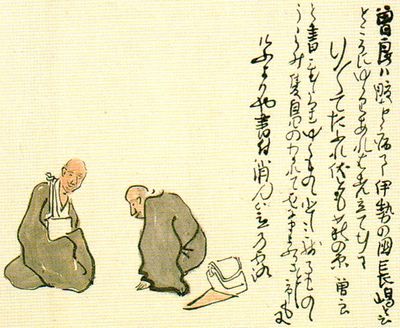 曽良ハ腹を病て伊勢の国長嶋と云
ところにゆかりあれは先立て行に
行々てたふれ伏とも萩の原 曽良
と書置たり行ものゝ悲しみ残るものゝ
うらみ隻鳧のわかれて雲にまよふかことし予も又
けふよりや書付消さん笠の露